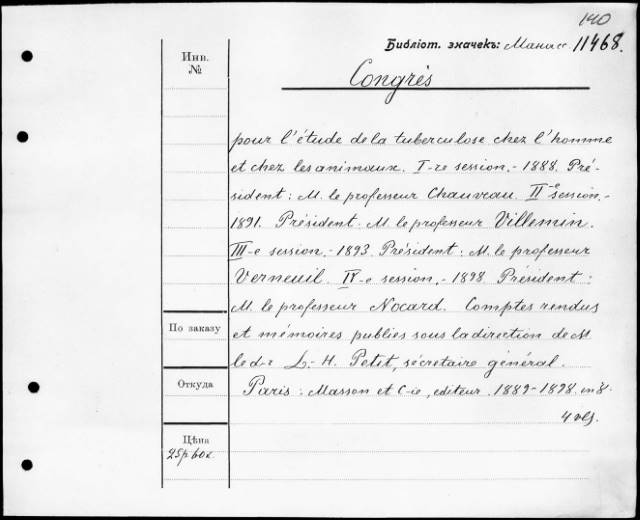 140
Библіот. значекъ: Манисс. 11468.
Инв.
№
Congrès
pour l'étude de la tuberculose chez l'homme
et chez les animaux. I-re session. - 1888. Pré-
sident: M. le professeur Chauveau. II-e session. -
1891. Président: M. le professeur Villemin.
III-e session. - 1893. Président: M. le professeur
Verneuil. IV-e session. - 1898. Président:
M. le professeur Nocard. Comptes rendus
et mémoires publies sous la direction de M.
le d-r L.-H. Petit, secrétaire général.
Paris: Masson et C-ie, editeur. 1889-1898. in 8º.
4 vls.
По заказу
Откуда
Цѣна
25р 60к.